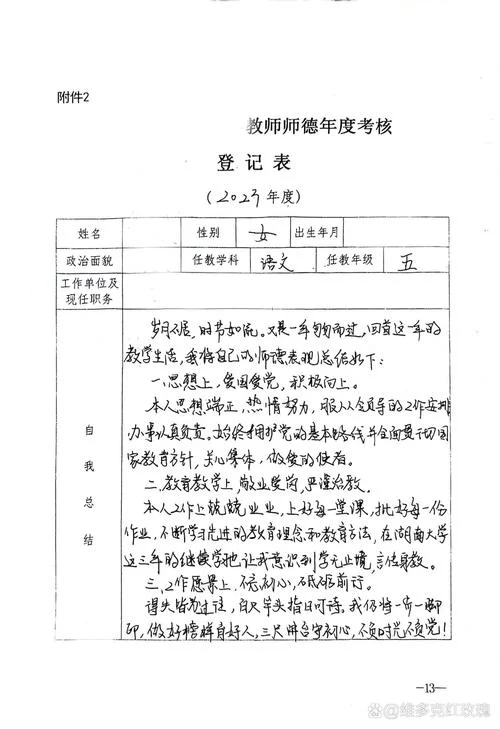 附件2
教师师德年度考核
登记表
(2023年度)
姓名 性别 女 出生年月
政治面貌 任教学科 语文 任教年级 五
工作单位及
现任职务
自我总结
岁月不居,时节如流。又是一年匆匆而过,回首这一年的
教学生活,我将自己的师德表现总结如下:
一、思想上,爱国爱党,积极向上。
本人思想端正,热情努力,服从领导的工作安排,
办事认真负责。始终拥护党的基本路线并全面贯彻国
家教育方针,关心集体,做爱的使者。
二、教育教学上,敬业爱岗,严谨治教。
本人工作上兢兢业业,上好每一堂课,批好每一份
作业,不断学习先进的教育理念和教育方法,在湖南大学
这三年的继续学习也让我意识到学无止境,言传身教。
三、工作愿景上,不忘初心,砥砺前行。
得失皆为过往,百尺竿头指日可待,我仍将一步一脚
印,做好榜样育好人,三尺讲台守初心,不负时光不负党!
—13—
@维多克红玫瑰